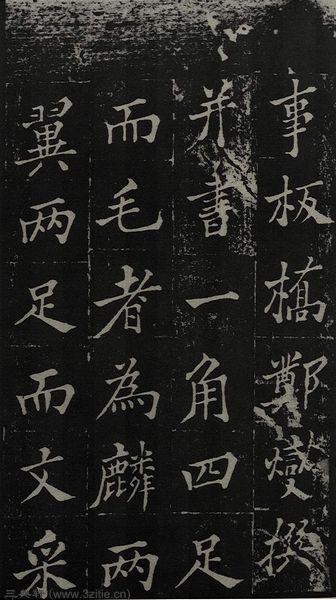 事板橋鄭燮撰
并書一角四足
而毛者為麟兩
翼两足而文采
www.3zitie.cn